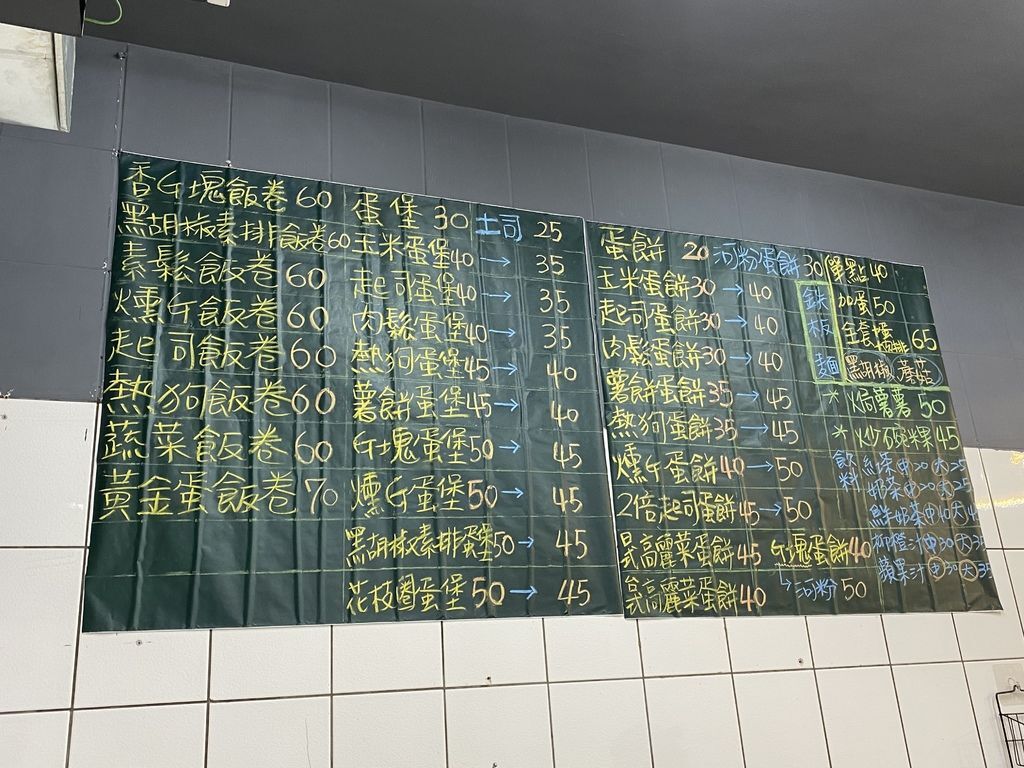 香ㄐ塊飯卷 60
黑胡椒素排飯卷 60
素鬆飯卷 60
燻ㄐ飯卷 60
起司飯卷 60
熱狗飯卷 60
蔬菜飯卷 60
黃金蛋飯卷 70
蛋堡 30 土司 25
玉米蛋堡 40 → 35
起司蛋堡 40 → 35
肉鬆蛋堡 40 → 35
熱狗蛋堡 45 → 40
薯餅蛋堡 45 → 40
ㄐ塊蛋堡 50 → 45
燻ㄐ蛋堡 50 → 45
黑胡椒素排蛋堡 50 → 45
花枝圈蛋堡 50 → 45
蛋餅 20 河粉蛋餅 30
玉米蛋餅 30 → 40
起司蛋餅 30 → 40
肉鬆蛋餅 30 → 40
薯餅蛋餅 35 → 45
熱狗蛋餅 35 → 45
燻ㄐ蛋餅 40 → 50
2倍起司蛋餅 45 → 50
高麗菜蛋餅 45 ㄐ塊蛋餅 40
高麗菜蛋餅 40 ↳河粉 50
鉄板麵
單點 40
加蛋 50
全套 65
黑胡椒 蘑菇
* 焗薯薯 50
* 炒碗粿 45
飲料
紅茶 中20 大25
奶茶 中20 大25
鮮奶茶 中40 大
柳橙汁 中30 大35
蘋果汁 中30 大35